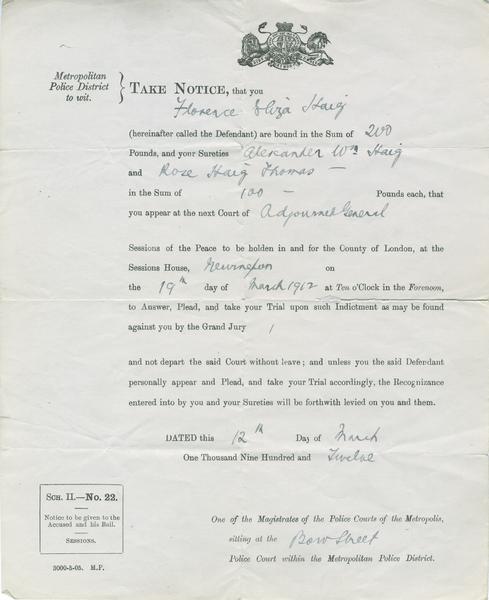 Metropolitan
Police District
to wit.
TAKE NOTICE, that you
Florence Eliza Haig
(hereinafter called the Defendant) are bound in the Sum of 200
Pounds, and your Sureties Alexander Wm Haig
and Rose Haig Thomas —
in the Sum of 100 — Pounds each, that
you appear at the next Court of Adjourned General
Sessions of the Peace to be holden in and for the County of London, at the
Sessions House, Newington on
the 19th day of March 1912 at Ten o'Clock in the Forenoon,
to Answer, Plead, and take your Trial upon such Indictment as may be found
against you by the Grand Jury
and not depart the said Court without leave; and unless you the said Defendant
personally appear and Plead, and take your Trial accordingly, the Recognizance
entered into by you and your Sureties will be forthwith levied on you and them.
DATED this 12th Day of March
One Thousand Nine Hundred and Twelve
SCH. II.—No. 22.
Notice to be given to the
Accused and his Bail.
SESSIONS.
3000-5-05. M.P.
One of the Magistrates of the Police Courts of the Metropolis,
sitting at the Bow Street
Police Court within the Metropolitan Police District.